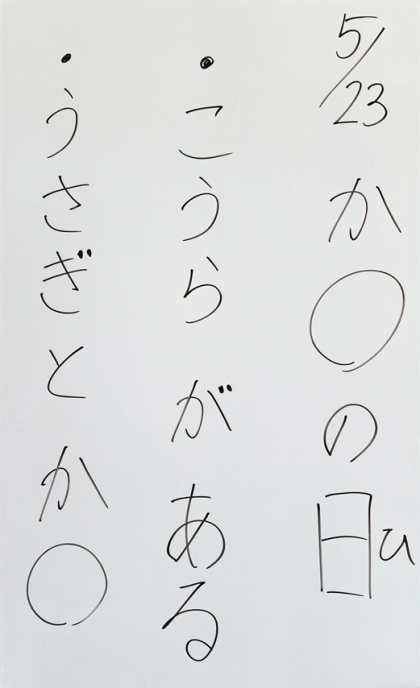 5/23 か〇の日ひ
・こうらがある
・うさぎとか〇